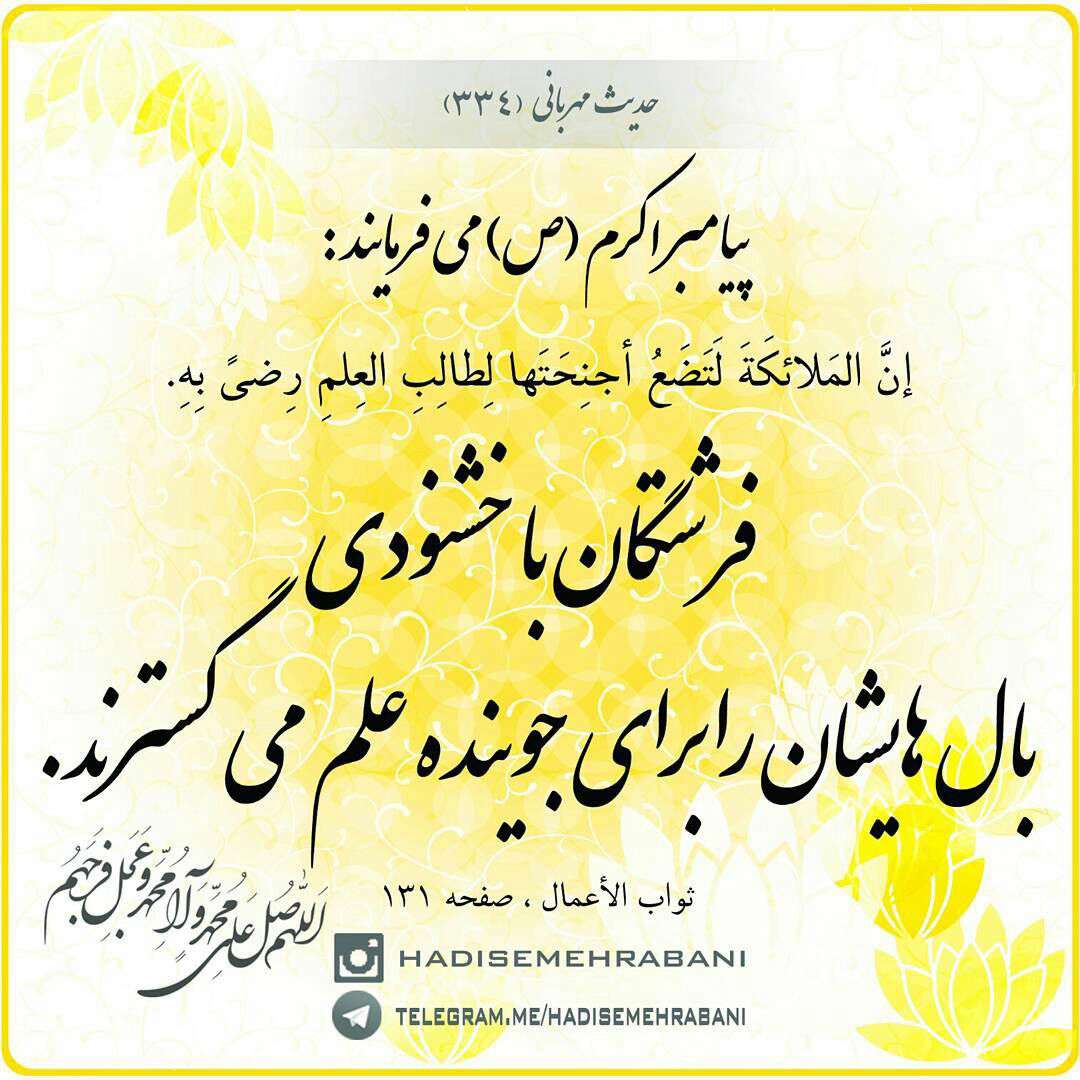 حدیث مهربانی (٣٣٤)
پیامبر اکرم (ص) می فرمایند:
إنَّ المَلائکَةَ لَتَضَعُ أجنِحَتَها لِطالِبِ العِلمِ رِضیً بِهِ.
فرشتگان با خشنودی
بال هایشان را برای جوینده علم می گسترند.
ثواب الأعمال ، صفحه ١٣١
اللهم صل علی محمد و آل محمد و عجل فرجهم
HADISEMEHRABANI
TELEGRAM.ME/HADISEMEHRABANI